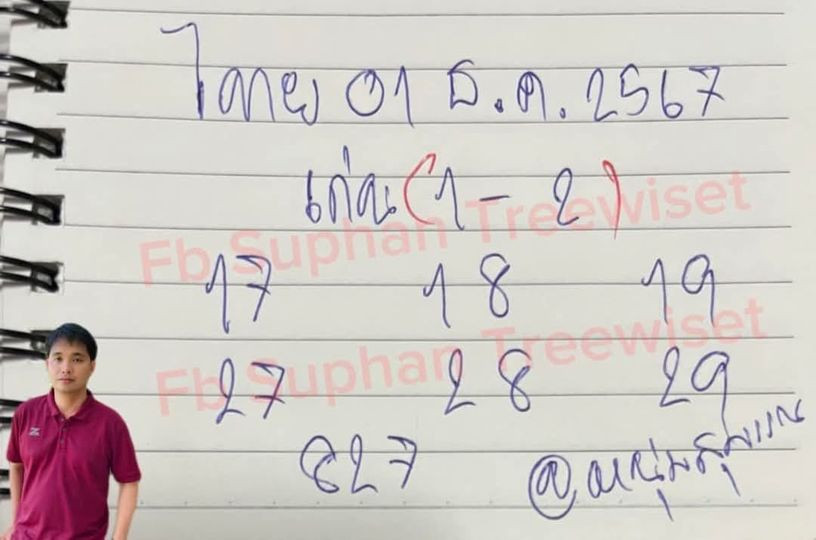 ไทย 01 ธ.ค. 2567
เด่น (1 - 2)
Fb Suphan Treewiset
17 18 19
Fb Suphan Treewiset
27 28 29
827 @หนุ่มสุพรรณ